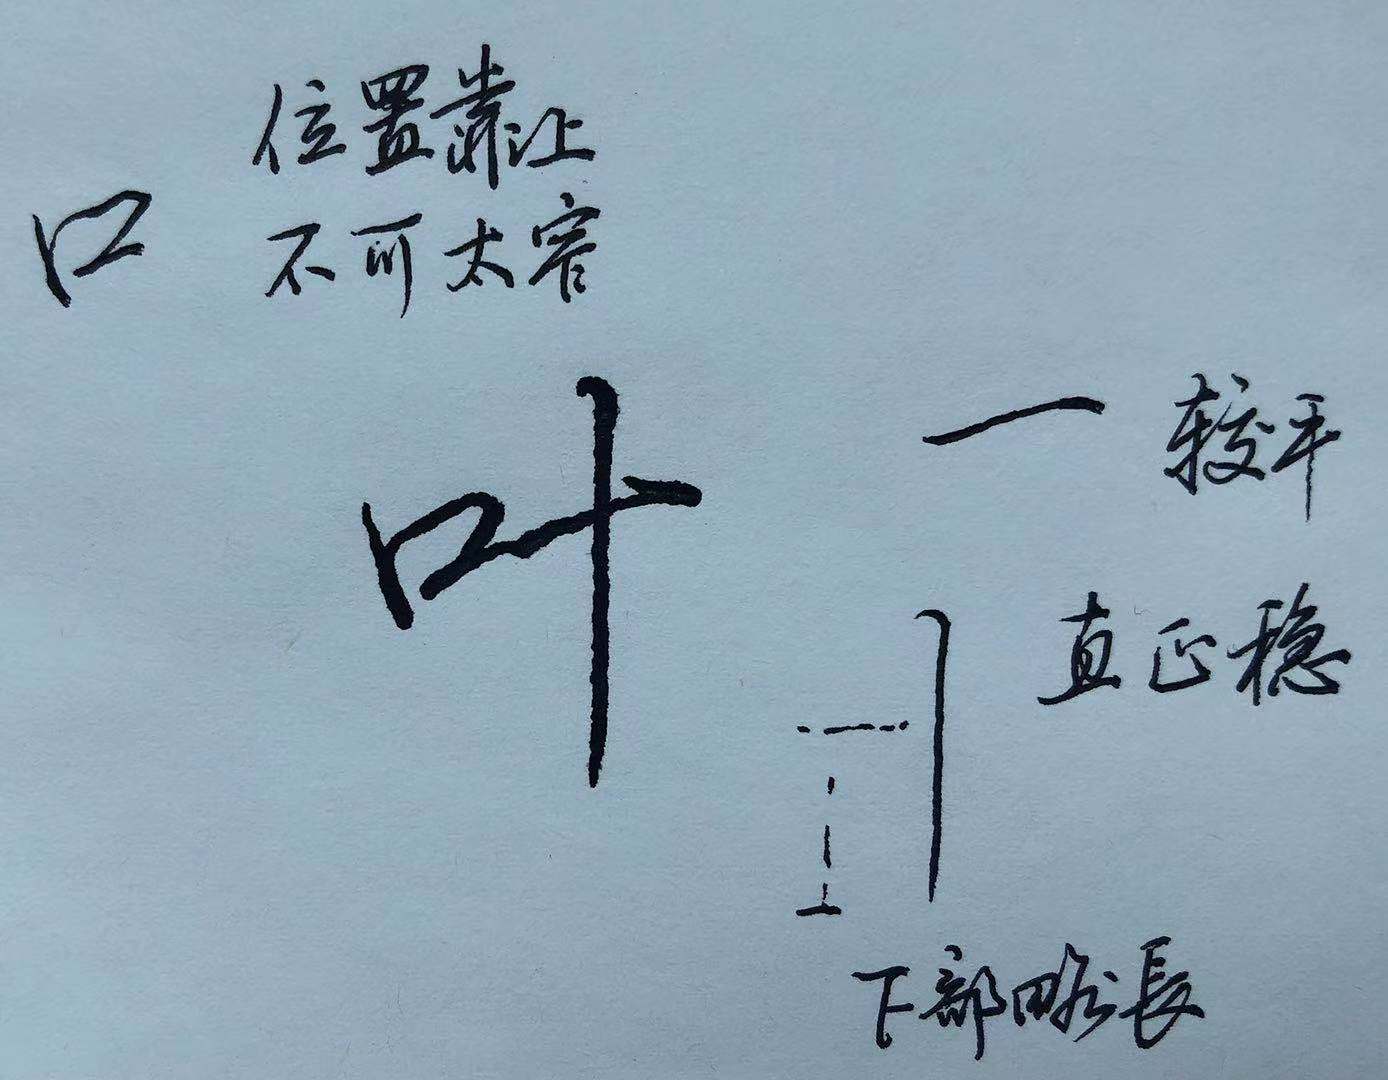 位置靠上
不可太窄
口
叶
一 较平
直正稳
下部略長